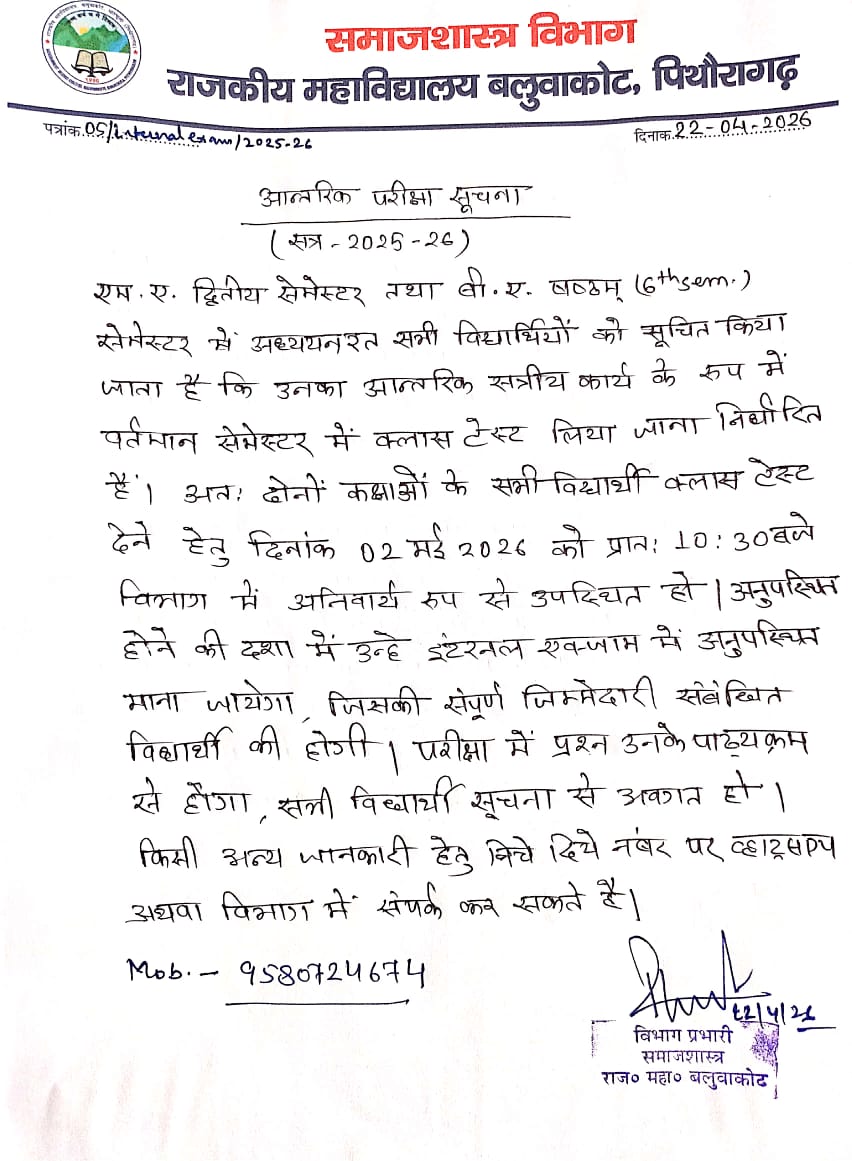 समाजशास्त्र विभाग
राजकीय महाविद्यालय बलुवाकोट, पिथौरागढ़
पत्रांक.05/internal exam/2025-26
दिनांक.22-04-2026
आन्तरिक परीक्षा सूचना
(सत्र - 2025-26)
एम. ए. द्वितीय सेमेस्टर तथा बी. ए. षष्ठम् (6th sem.)
सेमेस्टर में अध्ययनरत सभी विद्यार्थियों को सूचित किया
जाता है कि उनका आन्तरिक सत्रीय कार्य के रुप में
वर्तमान सेमेस्टर में क्लास टेस्ट लिया जाना निर्धारित
हैं। अतः दोनों कक्षाओं के सभी विद्यार्थी क्लास टेस्ट
देने हेतु दिनांक 02 मई 2026 को प्रातः 10:30 बजे
विभाग में अनिवार्य रुप से उपस्थित हो। अनुपस्थित
होने की दशा में उन्हे इंटरनल एक्जाम में अनुपस्थित
माना जायेगा, जिसकी संपूर्ण जिम्मेदारी संबंधित
विद्यार्थी की होगी। परीक्षा में प्रश्न उनके पाठ्यक्रम
से होंगा, सभी विद्यार्थी सूचना से अवगत हो।
किसी अन्य जानकारी हेतु निचे दिये नंबर पर
अथवा विभाग में संपर्क कर सकते है।
Mob. - 9580724674
22/4/26
विभाग प्रभारी
समाजशास्त्र
राज० महा० बलुवाकोट